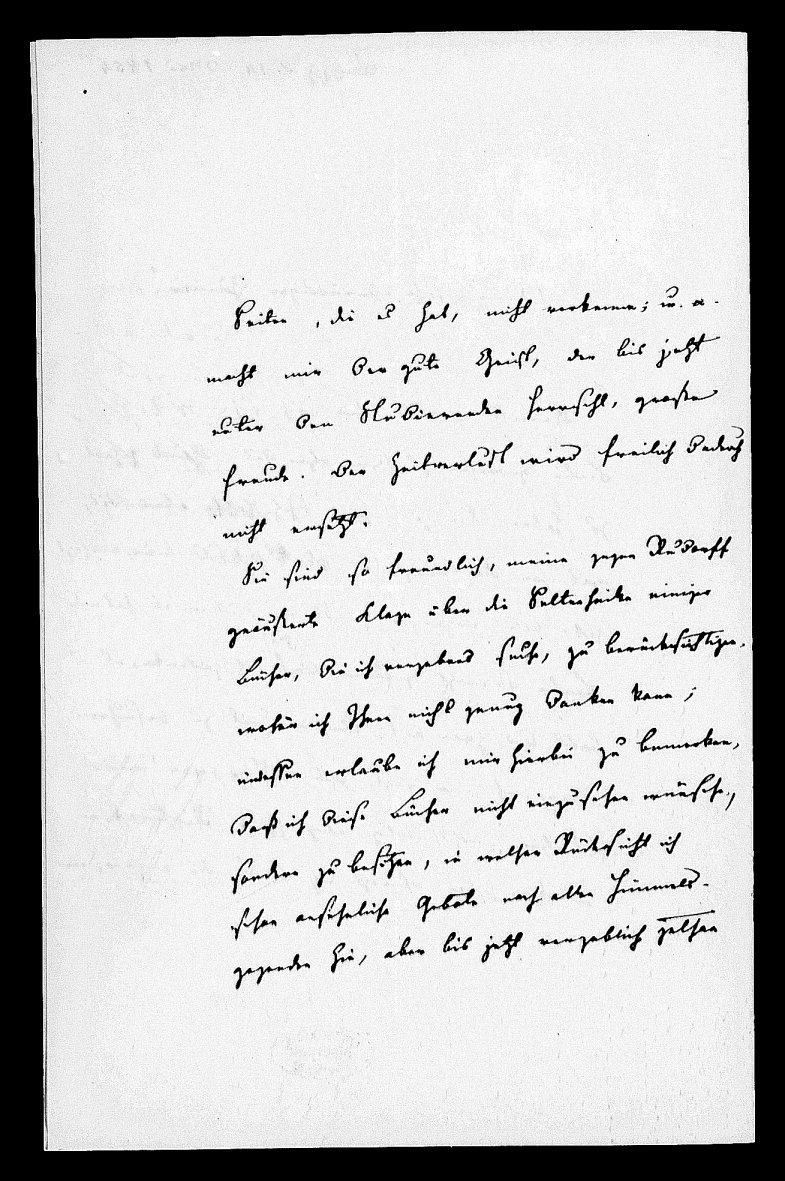 Seiten, die es hat, nicht verkennen; u. a.
macht mir der gute Geist, der bis jetzt
unter den Studierenden herrscht, große
Freude. Der Zeitverlust wird freilich dadurch
nicht ersetzt.
Sie sind so freundlich, meine gegen Rudorff
geäußerte Klage über die Seltenheit einiger
Bücher, die ich vergebens suche, zu berücksichtigen,
wofür ich Ihnen nicht genug danken kann;
indessen erlaube ich mir hierbei zu bemerken,
daß ich diese Bücher nicht einzusehen wünsche,
sondern zu besitzen, in welcher Rücksicht ich
schon ansehnliche Gebote nach allen Himmels-
gegenden hin, aber bis jetzt vergeblich